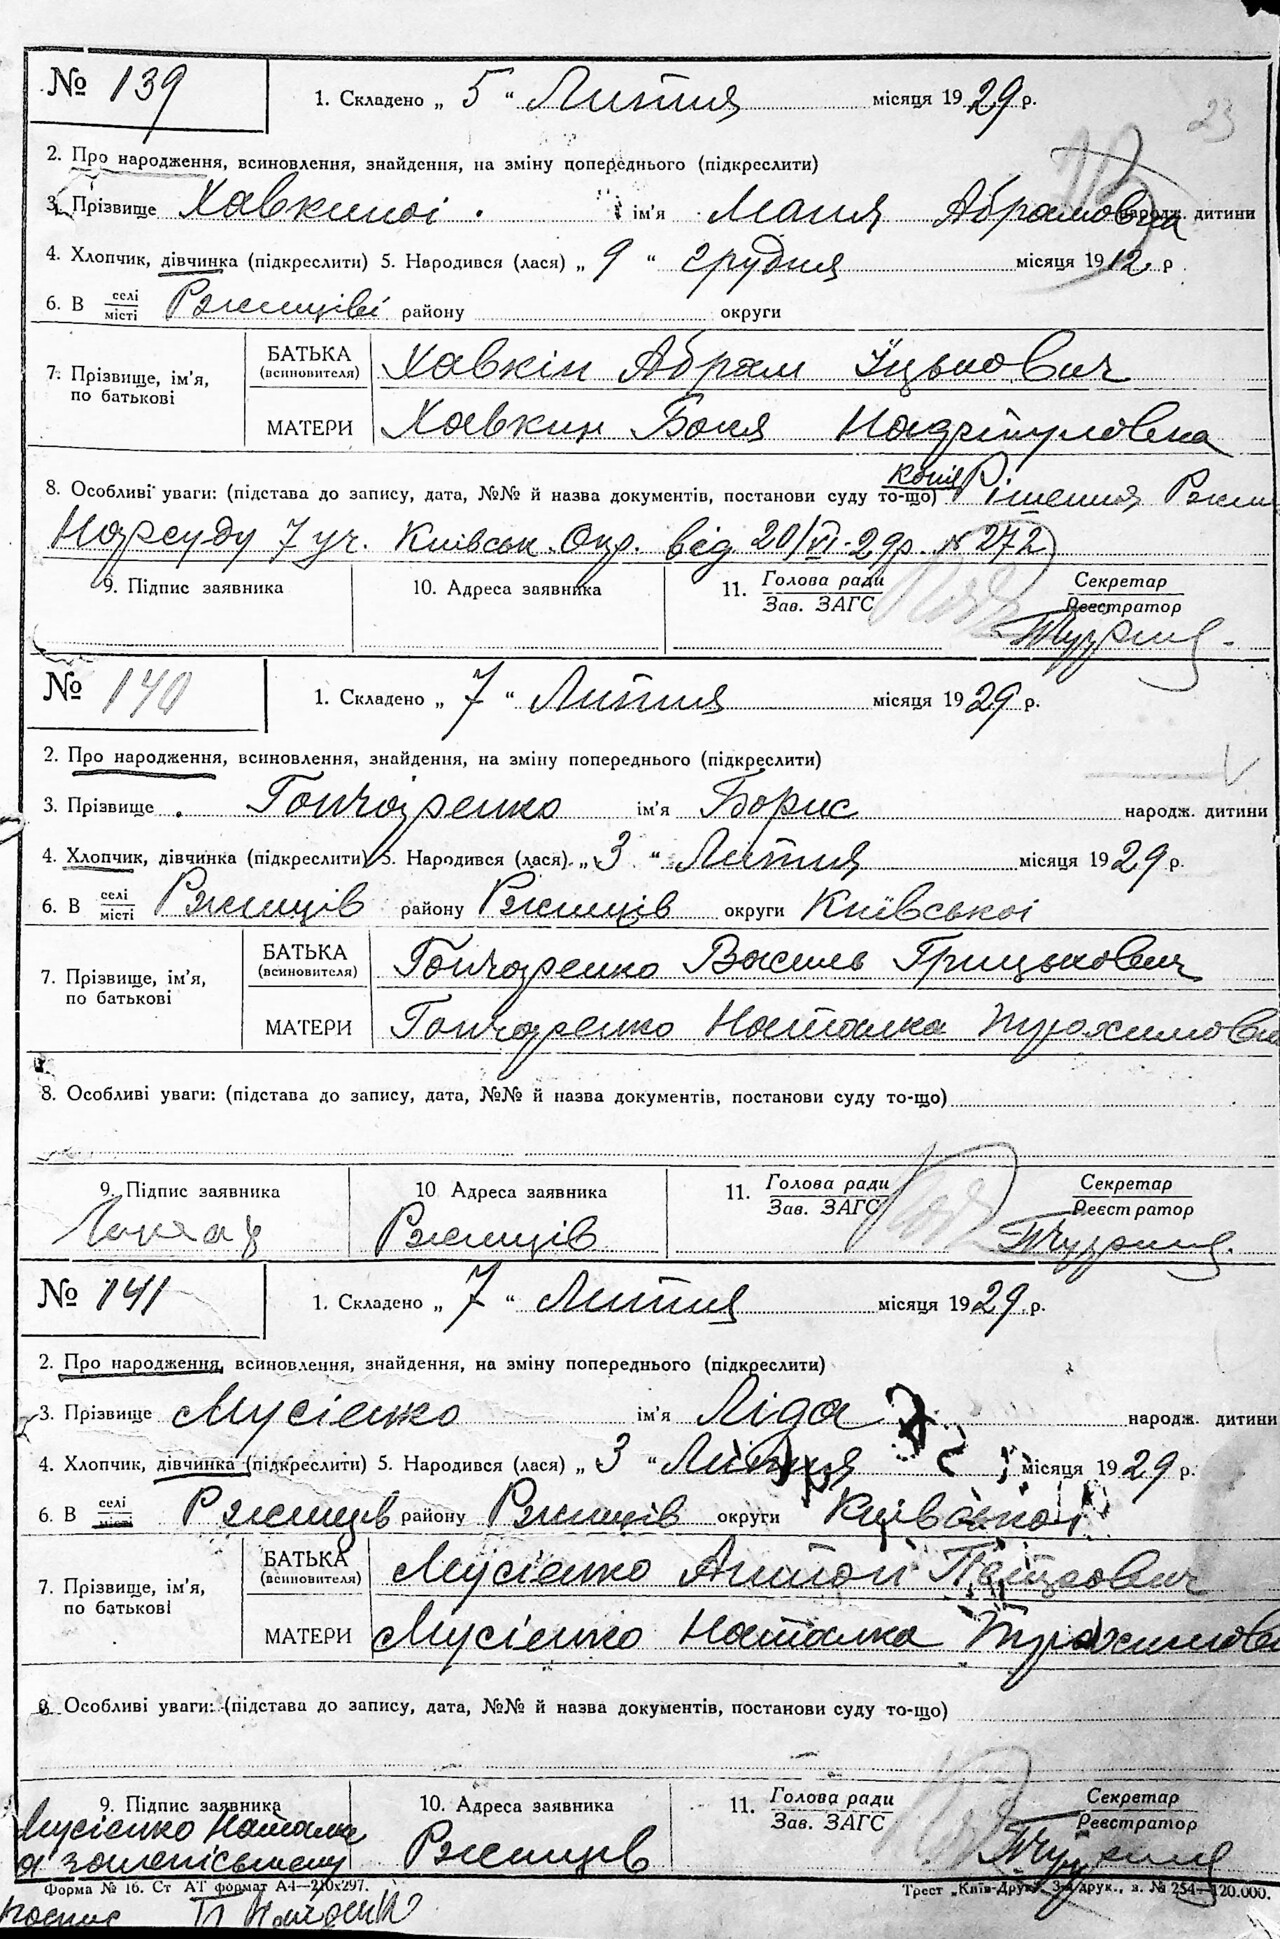 № 139
1. Складено „ 5 “ Липня місяця 1929 р.
23
2. Про народження, всиновлення, знайдення, на зміну попереднього (підкреслити)
3. Прізвище Хавкиної ім'я Маня Абрамовна народж. дитини
4. Хлопчик, дівчинка (підкреслити) 5. Народився (лася) „ 9 “ грудня місяця 1912 р.
6. В селі/місті Ржищіві району округи
7. Прізвище, ім'я, по батькові
БАТЬКА (всиновителя) Хавкін Абрам Іцькович
МАТЕРИ Хавкин Бася
8. Особливі уваги: (підстава до запису, дата, №№ й назва документів, постанови суду то-що) копія Рішення Ржищ
Нарсуду 7 уч. Київськ. Окр. від 20/VI-29р. № 272
9. Підпис заявника 10. Адреса заявника 11. Голова ради/Зав. ЗАГС Секретар/Реєстратор
№ 140
1. Складено „ 7 “ Липня місяця 1929 р.
2. Про народження, всиновлення, знайдення, на зміну попереднього (підкреслити)
3. Прізвище Гончаренко ім'я Борис народж. дитини
4. Хлопчик, дівчинка (підкреслити) 5. Народився (лася) „ 3 “ Липня місяця 1929 р.
6. В селі/місті Ржищів району Ржищів округи Київської
7. Прізвище, ім'я, по батькові
БАТЬКА (всиновителя) Гончаренко Василь Грицькович
МАТЕРИ Гончаренко Наталка Трохимовна
8. Особливі уваги: (підстава до запису, дата, №№ й назва документів, постанови суду то-що)
9. Підпис заявника 10 Адреса заявника 11. Голова ради/Зав. ЗАГС Секретар/Реєстратор
Ржищів
№ 141
1. Складено „ 7 “ Липня місяця 1929 р.
2. Про народження, всиновлення, знайдення, на зміну попереднього (підкреслити)
3. Прізвище Мусієнко ім'я Ліда народж. дитини
4. Хлопчик, дівчинка (підкреслити) 5. Народився (лася) „ 3 “ Липня місяця 1929 р.
6. В селі/місті Ржищев району Ржищів округи Київської
7. Прізвище, ім'я, по батькові
БАТЬКА (всиновителя) Мусієнко Антон Петрович
МАТЕРИ Мусієнко Наталка Трохимовн
8. Особливі уваги: (підстава до запису, дата, №№ й назва документів, постанови суду то-що)
9. Підпис заявника 10. Адреса заявника 11. Голова ради/Зав. ЗАГС Секретар/Реєстратор
Мусієнко Наталка
Ржищев
Форма № 16. Ст АТ формат А4—210х297. Трест „Київ-Друк“ 3-я друк., з. № 254—120.000.